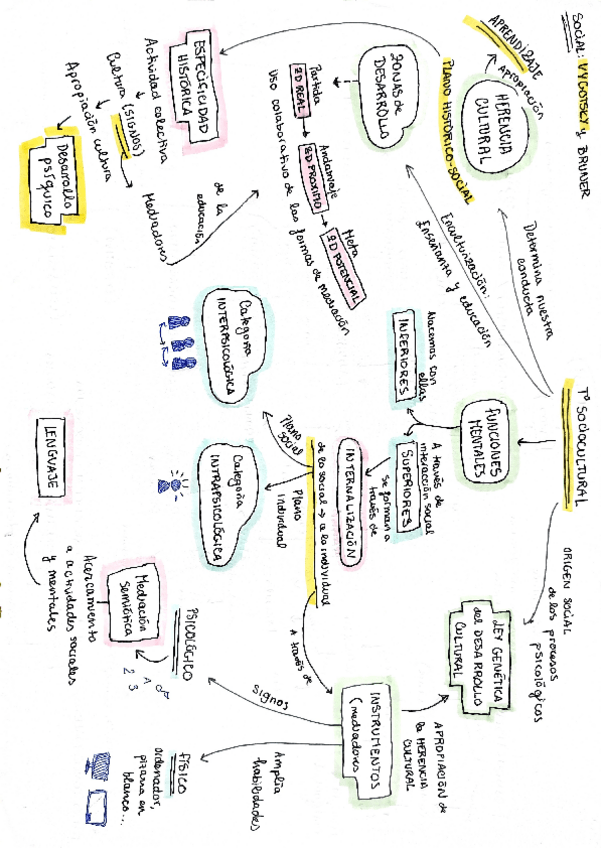 SOCIAL: VYGOTSKY y BRUNER
Tª SOCIOCULTURAL
Determina nuestra
conducta
HERENCIA
CULTURAL
Apropiación
APRENDIZAJE
PLANO HISTÓRICO-SOCIAL
ESPECIFICIDAD
HISTÓRICA
Actividad colectiva
Cultura (SIGNOS)
Apropiación cultura
Desarrollo
psíquico
Mediadores
de la
educación
Enculturización:
Enseñanza y educación
ZONAS de
DESARROLLO
Partida
ZD REAL
Andamiaje
ZD PRÓXIMO
Meta
ZD POTENCIAL
Uso colaborativo de las formas de mediación
FUNCIONES
MENTALES
Nacemos con
ellas
INFERIORES
A través de
interacción social
SUPERIORES
Se forman a
través de
INTERNALIZACIÓN
de lo social → a lo individual
Plano
social
Categoría
INTERPSICOLÓGICA
Plano
individual
Categoría
INTRAPSICOLÓGICA
A través de
INSTRUMENTOS
(mediadores)
APROPIACIÓN de
la HERENCIA
CULTURAL
LEY GENÉTICA
del DESARROLLO
CULTURAL
ORIGEN SOCIAL
de los procesos
psicológicos
Signos
PSICOLÓGICO
Mediación
Semiótica
A
2 3
Acercamiento
a actividades sociales
y mentales
LENGUAJE
Amplía
habilidades
FÍSICO
Ordenador,
pizarra en
blanco...